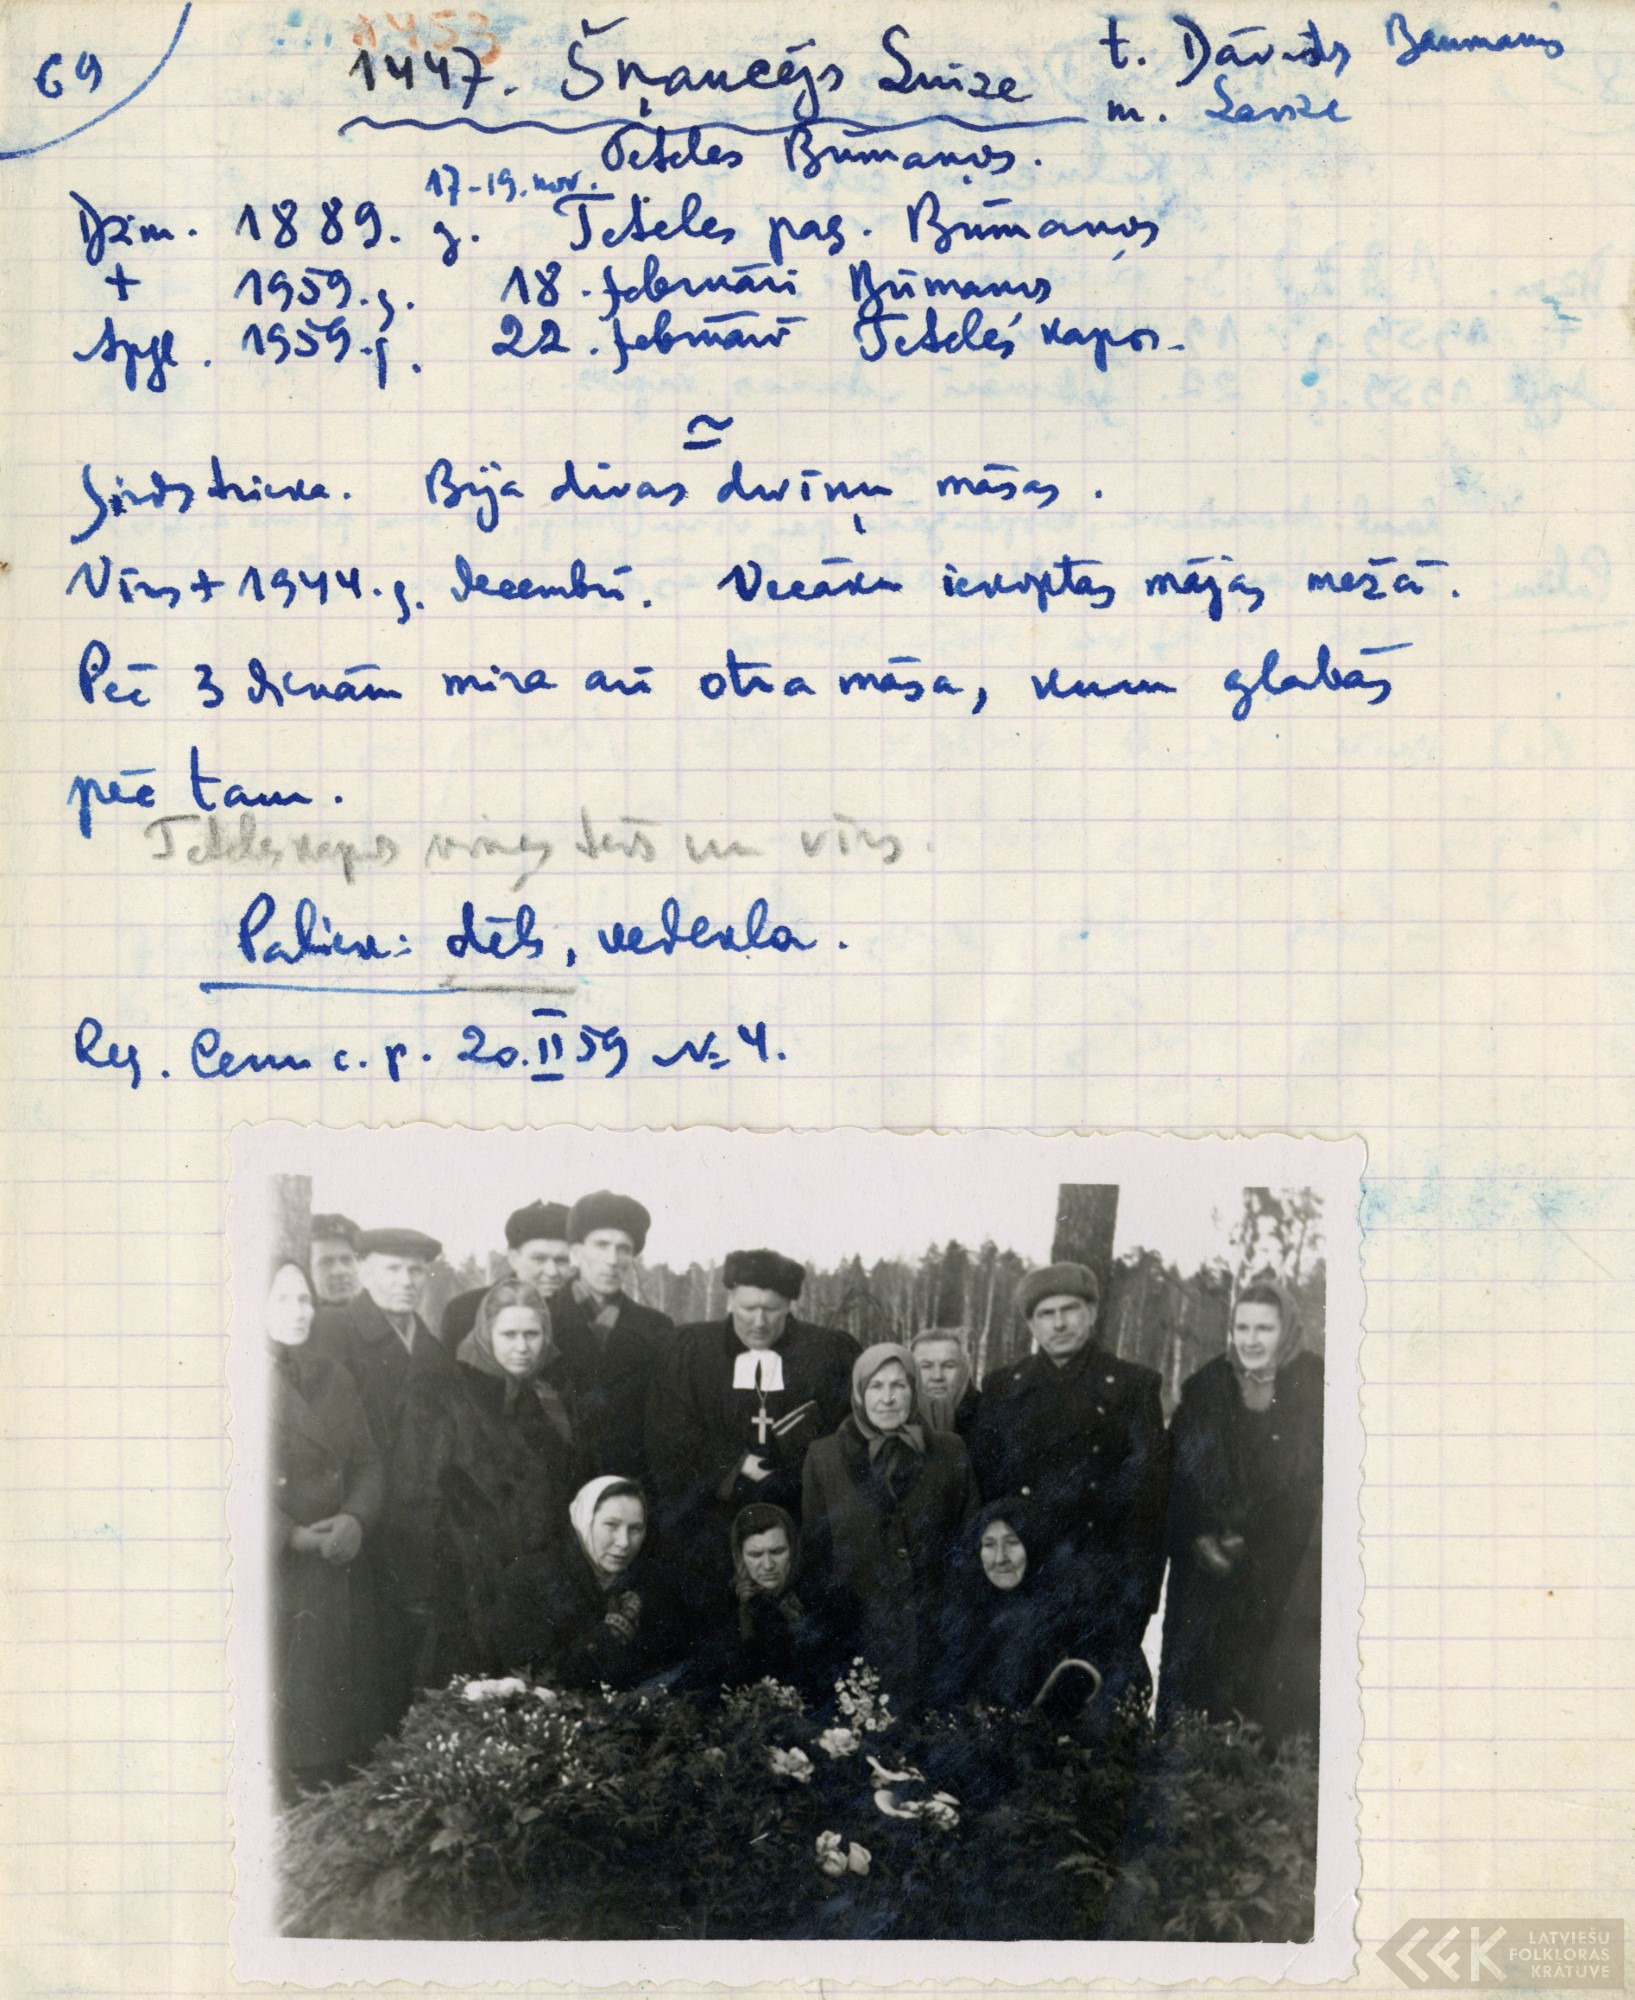 69
1453
1447. Šņaucējs Luize
t. Dāvids Baumanis
m. Lavize
Teteles Būmaņos.
17-19. nov.
Dzim. 1889. g. Teteles pag. Būmaņos
+ 1959. g. 18. februāri Būmaņos
Apgl. 1959. g. 22. februārī Teteles kapos.
Sirdstrieka. Bija divas dvīņu māsas.
Vīrs + 1944. g. decembrī. Vecāku iekoptas mājas mežā.
Pēc 3 dienām mira arī otra māsa, kuru glabās
pēc tam.
Teteles kapos viņas tēvs un vīrs.
Paliek: dēls, vedekla.
Reg. Cenu c. p. 20. II 59 № 4.
LATVIEŠU
FOLKLORAS
KRĀTUVE